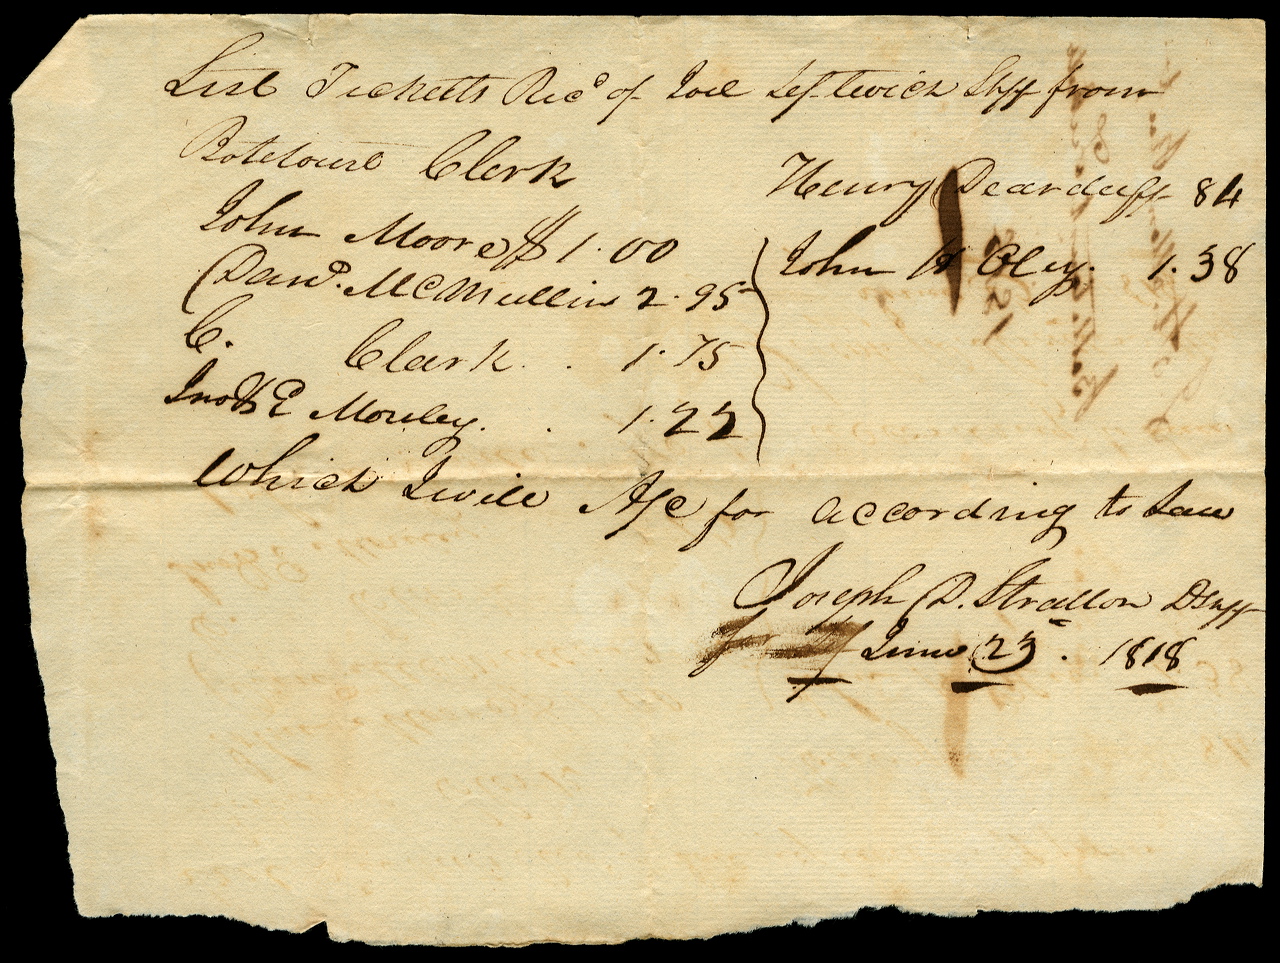 List Ticketts Recd of Joel Leftwich Shff from
Botetourt Clerk
John Moore $1.00
Danl. McMullin 2.95
C. Clark . . 1.75
Jno E Mosley . . 1.22
Henry Dearduff 84
John H Oley. 1.38
Which I will A/c for according to Law
Joseph D. Stratton DShff
June 23. 1818